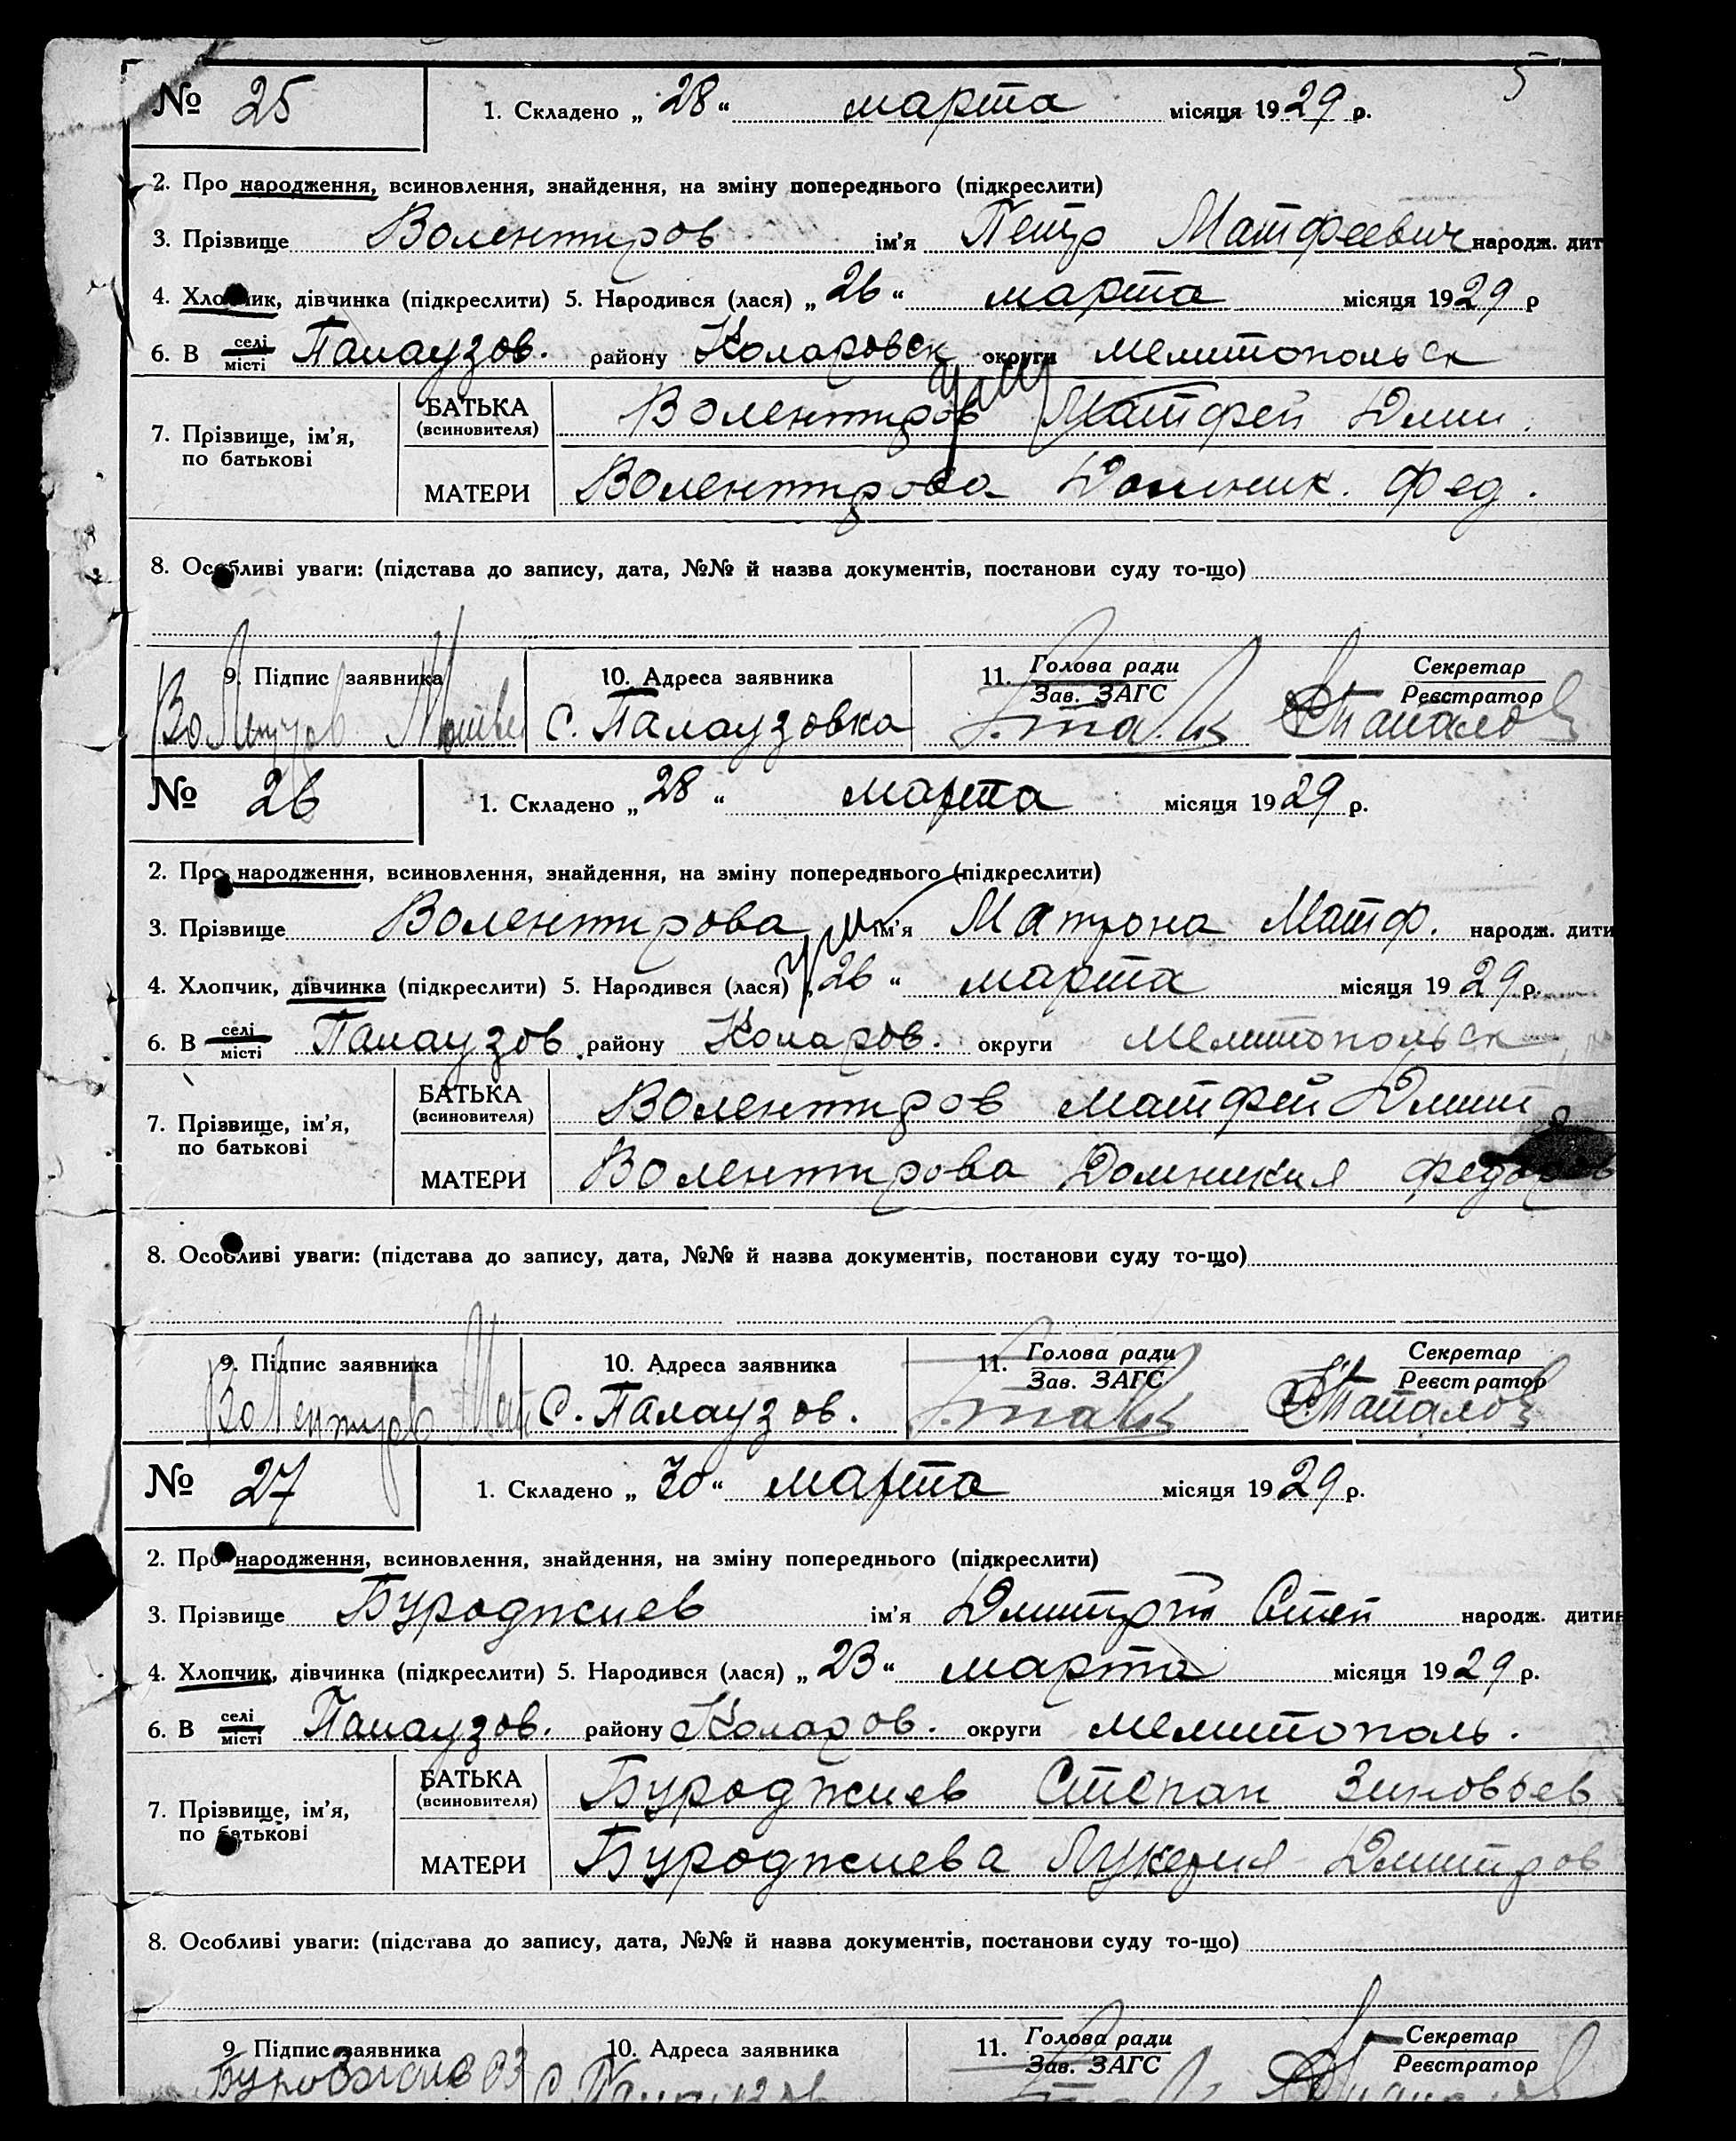 5
№ 25 1. Складено „ 28 “ марта місяця 1929 р.
2. Про народження, всиновлення, знайдення, на зміну попереднього (підкреслити)
3. Прізвище Волентиров ім’я Петр Матфеевич народж. дит
4. Хлопчик, дівчинка (підкреслити) 5. Народився (лася) „ 26 “ марта місяця 1929 р
6. В селі місті Палаузов. району Коларовск округи Мелитопольск
7. Прізвище, ім’я, по батькові БАТЬКА (всиновителя) Волентиров Матфей Дмит.
МАТЕРИ Волентирова Домник. Фед.
8. Особливі уваги: (підстава до запису, дата, №№ й назва документів, постанови суду то-що)
9. Підпис заявника 10. Адреса заявника 11. Голова ради Зав. ЗАГС Секретар Реєстратор
Волентиров с. Палаузовка
№ 26 1. Складено „ 28 “ марта місяця 1929 р.
2. Про народження, всиновлення, знайдення, на зміну попереднього (підкреслити)
3. Прізвище Волентирова ім’я Матрона Матф. народж. дити
4. Хлопчик, дівчинка (підкреслити) 5. Народився (лася) „ 26 “ марта місяця 1929 р.
6. В селі місті Палаузов. району Коларов. округи Мелитопольск
7. Прізвище, ім’я, по батькові БАТЬКА (всиновителя) Волентиров Матфей Дмит
МАТЕРИ Волентирова Домникия Федоров
8. Особливі уваги: (підстава до запису, дата, №№ й назва документів, постанови суду то-що)
9. Підпис заявника 10. Адреса заявника 11. Голова ради Зав. ЗАГС Секретар Реєстратор
Волентиров Мат с. Палаузов.
№ 27 1. Складено „ 30 “ марта місяця 1929 р.
2. Про народження, всиновлення, знайдення, на зміну попереднього (підкреслити)
3. Прізвище Буроджиев ім’я Дмитрий Степ народж. дитин
4. Хлопчик, дівчинка (підкреслити) 5. Народився (лася) „ 23 “ марта місяця 1929 р.
6. В селі місті Палаузов. району Коларов. округи Мелитополь.
7. Прізвище, ім’я, по батькові БАТЬКА (всиновителя) Буроджиев Степан Зиновьев
МАТЕРИ Буроджиева Лукерия Дмитров
8. Особливі уваги: (підстава до запису, дата, №№ й назва документів, постанови суду то-що)
9. Підпис заявника 10. Адреса заявника 11. Голова ради Зав. ЗАГС Секретар Реєстратор
с. Палаузов